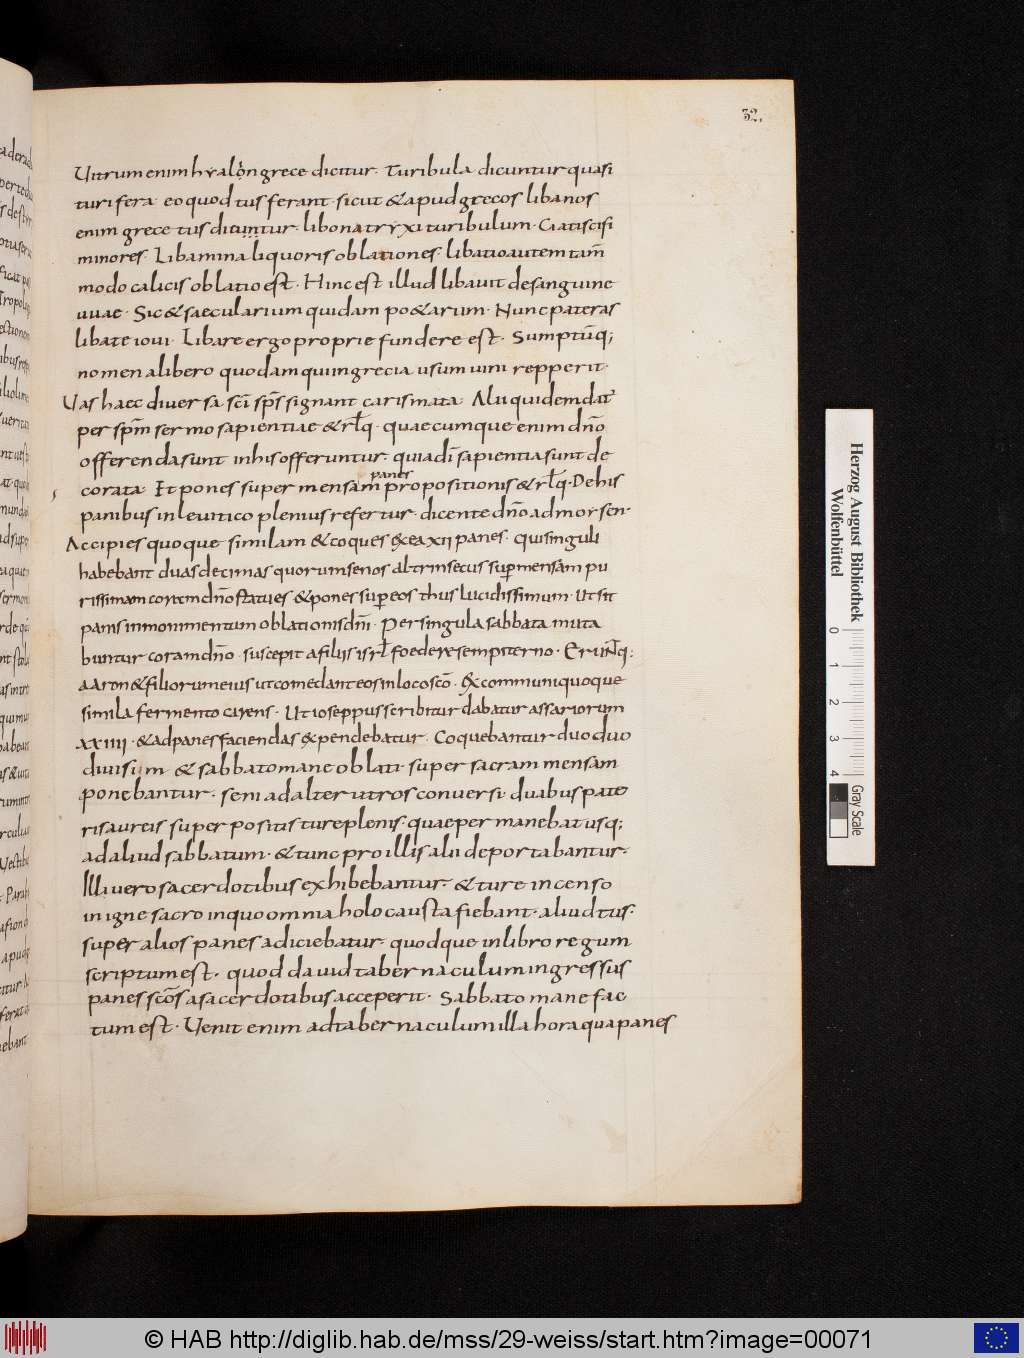 32.
Uitrum enim hyalon grece dicitur. Turibula dicuntur quasi
turifera eo quod tus ferant. sicut & apud grecos libanos
enim grece tus dicuntur. libonatryxi turibulum. Ciatis cifi
minores. Libamina liquoris oblationes. libatio autem tam̄
modo calicis oblatio est. Hinc est illud libauit de sanguine
uuae. Sic & saecularium quidam po&arum. Nunc pateras
libate ioui. Libare ergo proprie fundere est. Sumptūq;
nomen a libero quodam qui in grecia usum uini repperit.
Uas haec diuersa sc̄i sp̄s signant carismata. Alii quidem dat̄
per sp̄m sermo sapientiae & rl̄q. quaecumque enim dn̄o
offerenda sunt in his offeruntur. quia dī sapientia sunt de
panes
corata. Et pones super mensam propositionis & rl̄q. De his
panibus in leuitico plenius refertur. dicente dn̄o ad morsen.
Accipies quoque similam & coques ex ea xii panes. qui singuli
habebant duas decimas quorum senos altrinsecus sup mensam pu
rissimam coram dn̄o statues & pones super eos thus lucidissimum. Ut sit
panis in monimentum oblationis dn̄i. Per singula sabbata muta
buntur coram dn̄o. suscepti a filiis isrl̄ foedere sempiterno. Eruntq;
aaron & filiorum eius ut comedant eos in loco sc̄o. Ex communi quoque
simila fermento carens. Ut ioseppus scribitur dabatur assariorum
xxiiii. & ad panes faciendas expendebatur. Coquebantur duo duo
diuisim & sabbato mane oblati super sacram mensam
ponebantur. seni ad alterutros conuersi duabus pate
ris aureis superpositis ture plenis. quae permanebat usq;
ad aliud sabbatum. & tunc pro illis alii deportabantur.
Illi uero sacerdotibus exhibebantur. & ture incenso
in igne sacro in quo omnia holocausta fiebant. aliud tus.
super alios panes adiciebatur. quodque in libro regum
scriptum est. quod dauid tabernaculum ingressus
panes sc̄os a sacerdotibus acceperit. Sabbato mane fac
tum est. Uenit enim ad tabernaculum illa hora qua panes
Herzog August Bibliothek
Wolfenbüttel
0 1 2 3 4
Gray Scale
© HAB http://diglib.hab.de/mss/29-weiss/start.htm?image=00071